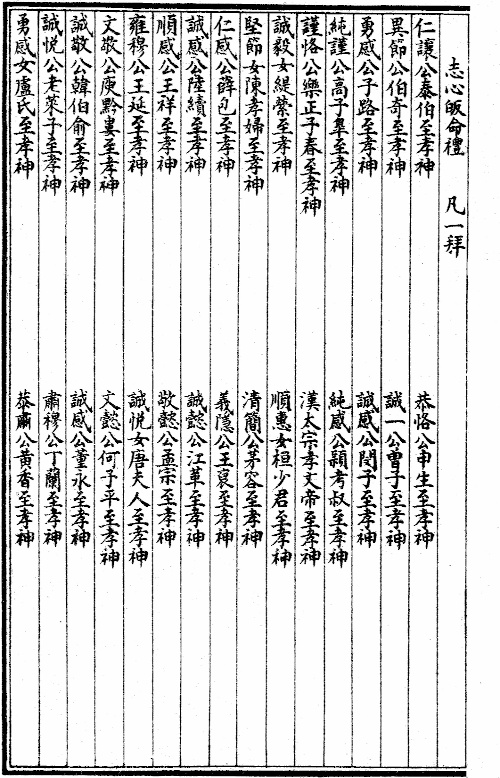 志心皈命禮　凡一拜
仁讓公泰伯至孝神　恭恪公申生至孝神
異節公伯奇至孝神　誠一公曾子至孝神
勇感公子路至孝神　誠感公閔子至孝神
純謹公高子皐至孝神　純感公潁考叔至孝神
謹恪公樂正子春至孝神　漢太宗孝文帝至孝神
誠毅女緹縈至孝神　順惠女桓少君至孝神
堅節女陳孝婦至孝神　清簡公茅容至孝神
仁感公薛包至孝神　義隱公王裒至孝神
誠感公陸績至孝神　誠懿公江革至孝神
順感公王祥至孝神　敬懿公孟宗至孝神
雍穆公王延至孝神　誠悅女唐夫人至孝神
文敬公庾黔婁至孝神　文懿公何子平至孝神
誠敬公韓伯俞至孝神　誠感公董永至孝神
誠悅公老萊子至孝神　肅穆公丁蘭至孝神
勇感女盧氏至孝神　恭肅公黃香至孝神